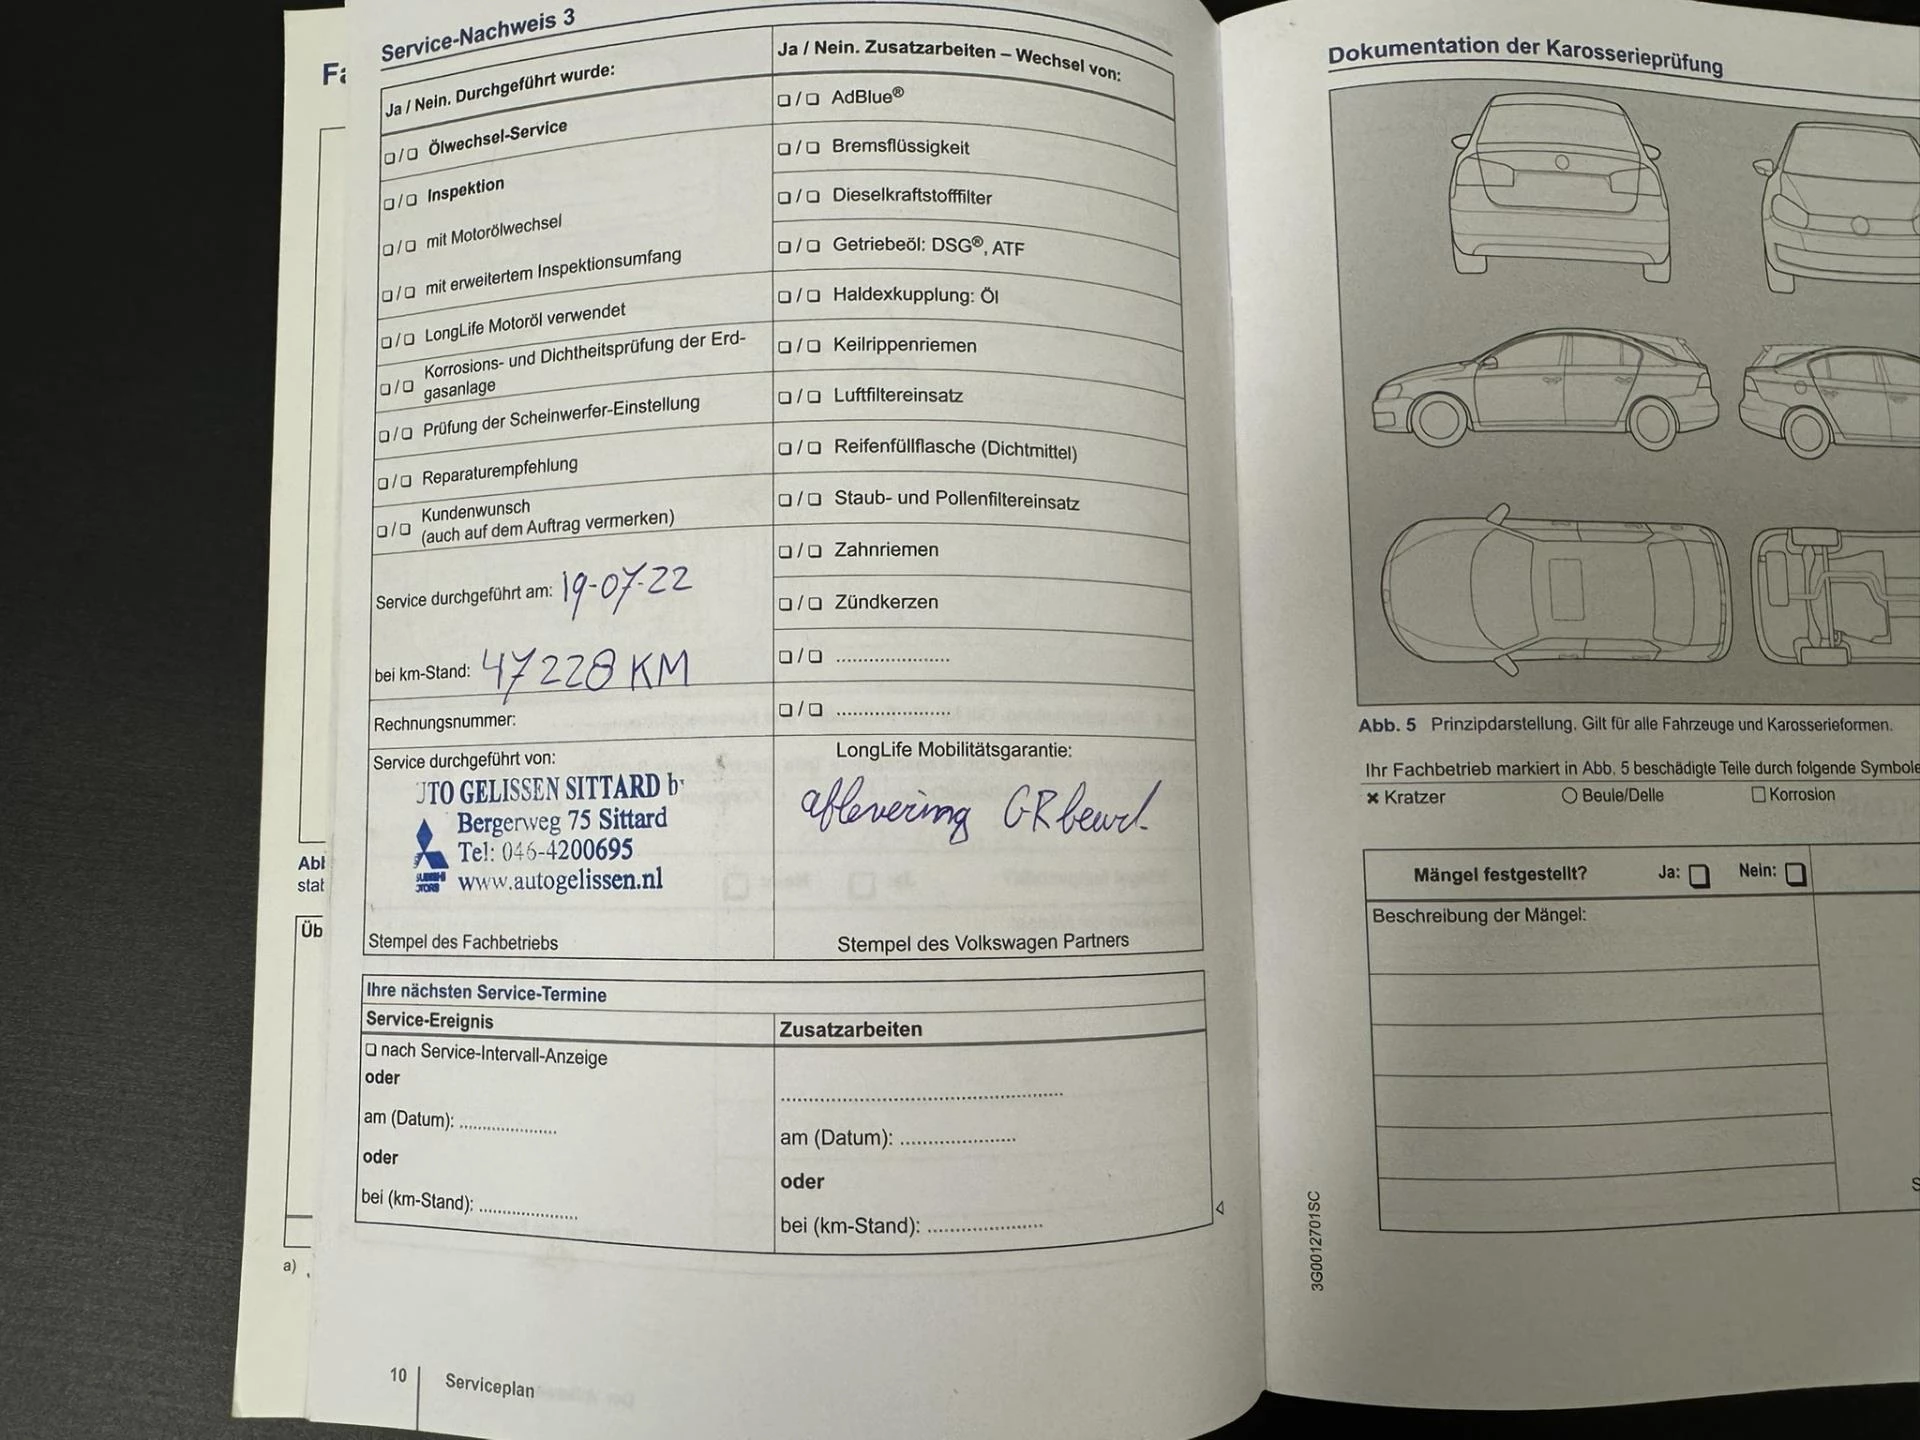 Service-Nachweis 3
Ja / Nein. Durchgeführt wurde:
❏ / ❏ Ölwechsel-Service
❏ / ❏ Inspektion
❏ / ❏ mit Motorölwechsel
❏ / ❏ mit erweitertem Inspektionsumfang
❏ / ❏ LongLife Motoröl verwendet
❏ / ❏ Korrosions- und Dichtheitsprüfung der Erd-
gasanlage
❏ / ❏ Prüfung der Scheinwerfer-Einstellung
❏ / ❏ Reparaturempfehlung
❏ / ❏ Kundenwunsch
(auch auf dem Auftrag vermerken)
Service durchgeführt am: 19-07-22
bei km-Stand: 47228 KM
Rechnungsnummer:
Service durchgeführt von:
UTO GELISSEN SITTARD
Bergerweg 75 Sittard
Tel: 046-4200695
www.autogelissen.nl
Stempel des Fachbetriebs
Ja / Nein. Zusatzarbeiten – Wechsel von:
❏ / ❏ AdBlue®
❏ / ❏ Bremsflüssigkeit
❏ / ❏ Dieselkraftstofffilter
❏ / ❏ Getriebeöl: DSG®, ATF
❏ / ❏ Haldexkupplung: Öl
❏ / ❏ Keilrippenriemen
❏ / ❏ Luftfiltereinsatz
❏ / ❏ Reifenfüllflasche (Dichtmittel)
❏ / ❏ Staub- und Pollenfiltereinsatz
❏ / ❏ Zahnriemen
❏ / ❏ Zündkerzen
❏ / ❏ ......................
❏ / ❏ ......................
LongLife Mobilitätsgarantie:
aflevering GRbeurt
Stempel des Volkswagen Partners
Ihre nächsten Service-Termine
Service-Ereignis
❏ nach Service-Intervall-Anzeige
oder
am (Datum): ....................
oder
bei (km-Stand): ....................
Zusatzarbeiten
......................................................
am (Datum): ......................
oder
bei (km-Stand): ......................
10
Serviceplan
Dokumentation der Karosserieprüfung
Abb. 5 Prinzipdarstellung. Gilt für alle Fahrzeuge und Karosserieformen.
Ihr Fachbetrieb markiert in Abb. 5 beschädigte Teile durch folgende Symbole
× Kratzer ○ Beule/Delle □ Korrosion
Mängel festgestellt? Ja: ❏ Nein: ❏
Beschreibung der Mängel:
3G0012701SC
Üb
a)